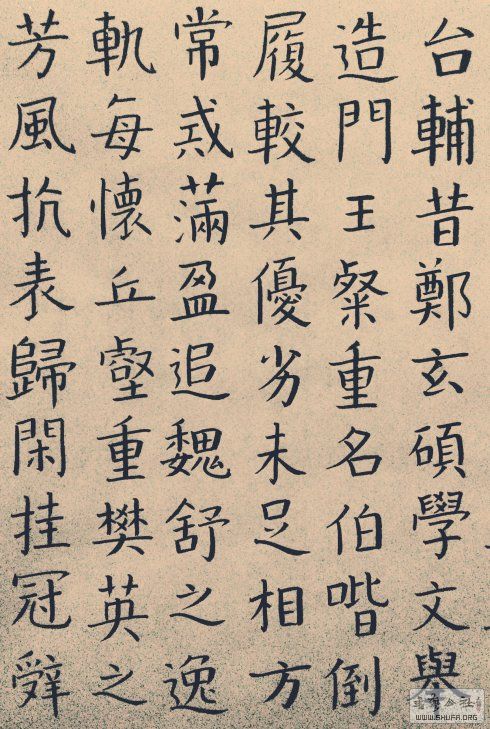 台輔昔鄭玄碩學文舉
造門王粲重名伯喈倒
履較其優劣未足相方
常戒滿盈追魏舒之逸
軌每懷丘壑重樊英之
芳風抗表歸閑挂冠辤
WWW.SHUFA.ORG